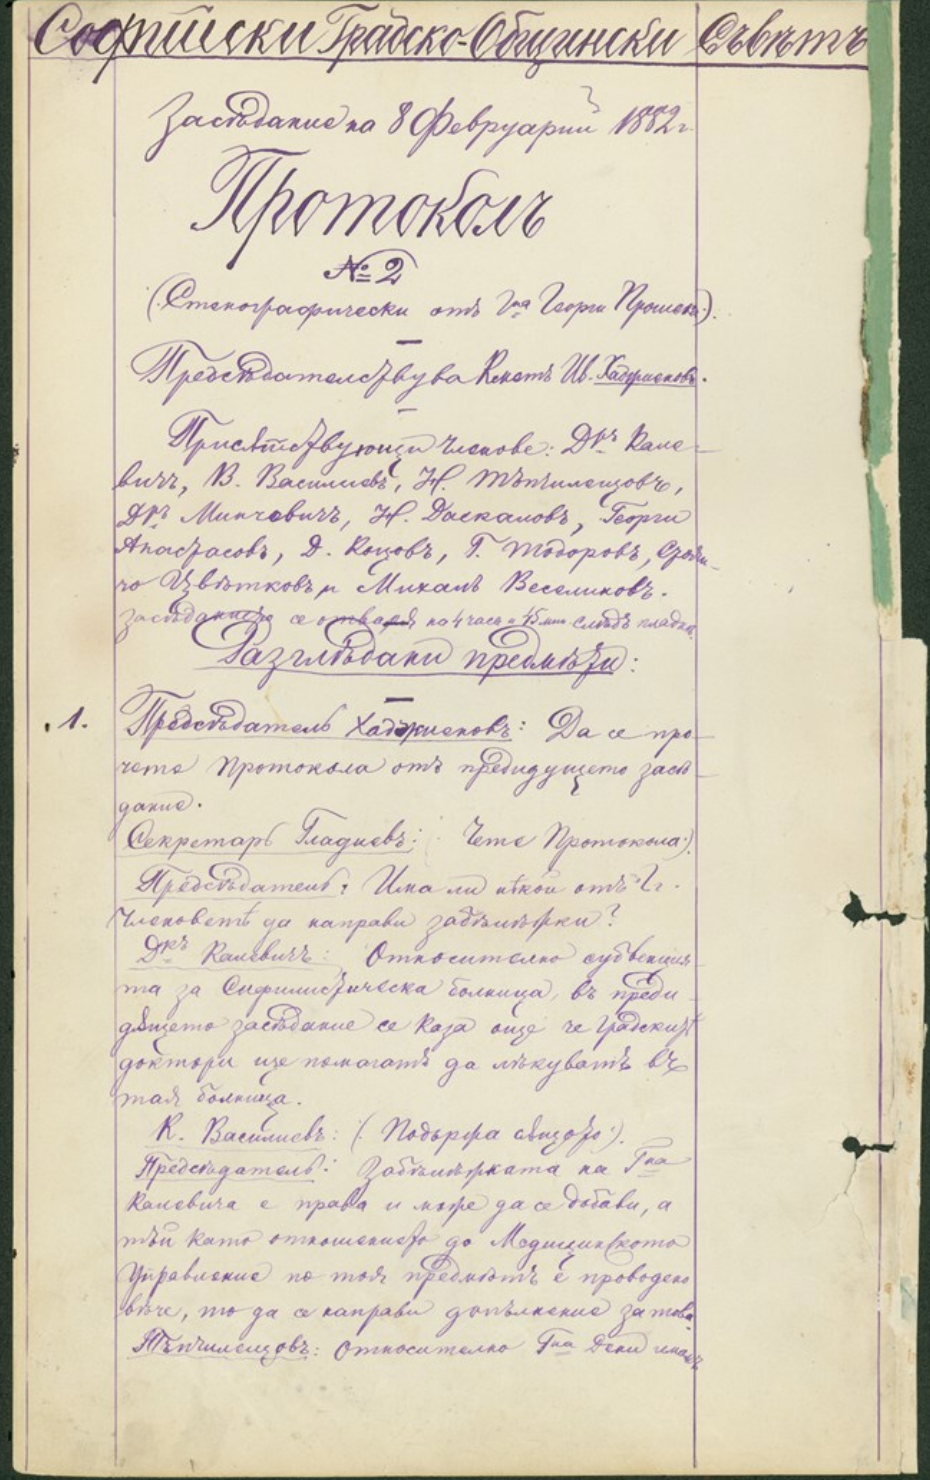 Софийски Градско-Общински Съвѣтъ
Засѣдание на 8 Февруарий 1882 г.
Протоколъ
№ 2
(Стенографически отъ Гна Георги Прошекъ).
Председателствува Кметъ Ив. Хаджиеновъ.
Присѫтствующи Членове: Дръ Кале-
вичъ, В. Василиевъ, Н. Тъпчилещовъ,
Дръ Минчовичъ, Н. Даскаловъ, Георги
Анастасовъ, Д. Коцовъ, Т. Тодоровъ, Стои-
чо Цвѣтковъ и Михалъ Веселиновъ.
Засѣданието се отваря на 4 часа и 45 мин. слѣдъ пладне.
Разглѣдани предмѣти:
1. Председатель Хаджиеновъ: Да се про-
чете Протокола отъ предидущето засѣ-
дание.
Секретарь Гладиевъ: (Чете Протокола).
Председатель: Има ли нѣкой отъ Гг.
Членоветѣ да направи забѣлѣжки?
Дръ Калевичъ: Относително субвенция-
та за Сифилистическа болница, въ преди-
дѫщето засѣдание се каза още че Градските
доктори ще помагатъ да лѣкуватъ въ
тая болница.
К. Василиевъ: (Подържа сѫщото).
Председатель: Забѣлѣжката на Гна
Калевича е права и може да се добави, а
тъй като отношението до Медицинското
Управление по тоя предмѣтъ е проводено
вече, то да се направи допълнение за това.
Тъпчилещовъ: Относително Гна Дени имамъ